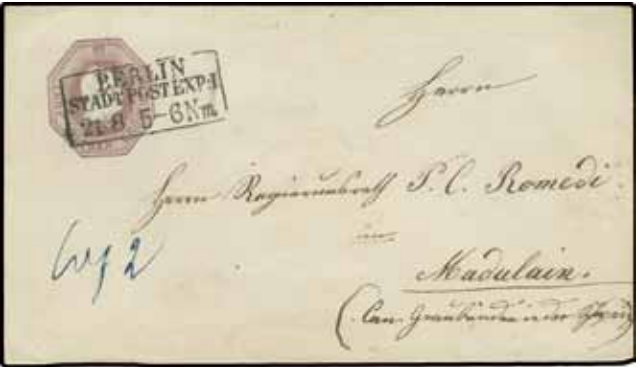 BERLIN
STADTPOSTEXP:I
21 8 5-6Nm
Herrn
Herrn Regierunsrath P. C. Romedi
in
Madulain.
(Can. Graubünden in der Schweiz